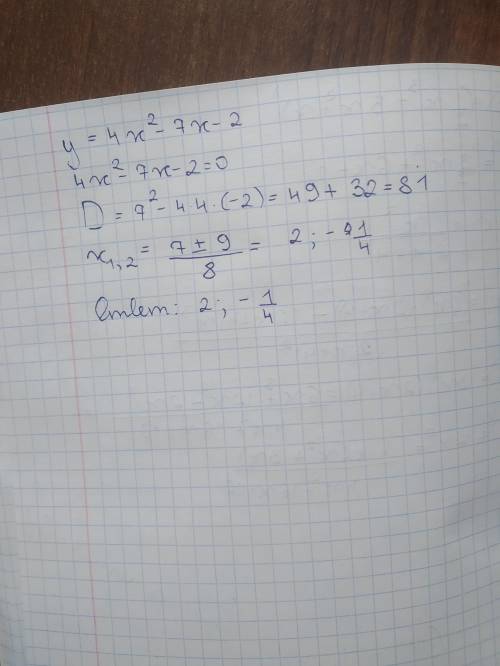 y = 4x² - 7x - 2
4x² - 7x - 2 = 0
D = 7² - 4·4·(-2) = 49 + 32 = 81
x₁,₂ = (7 ± 9)/8 = 2; -1/4
Ответ: 2; -1/4